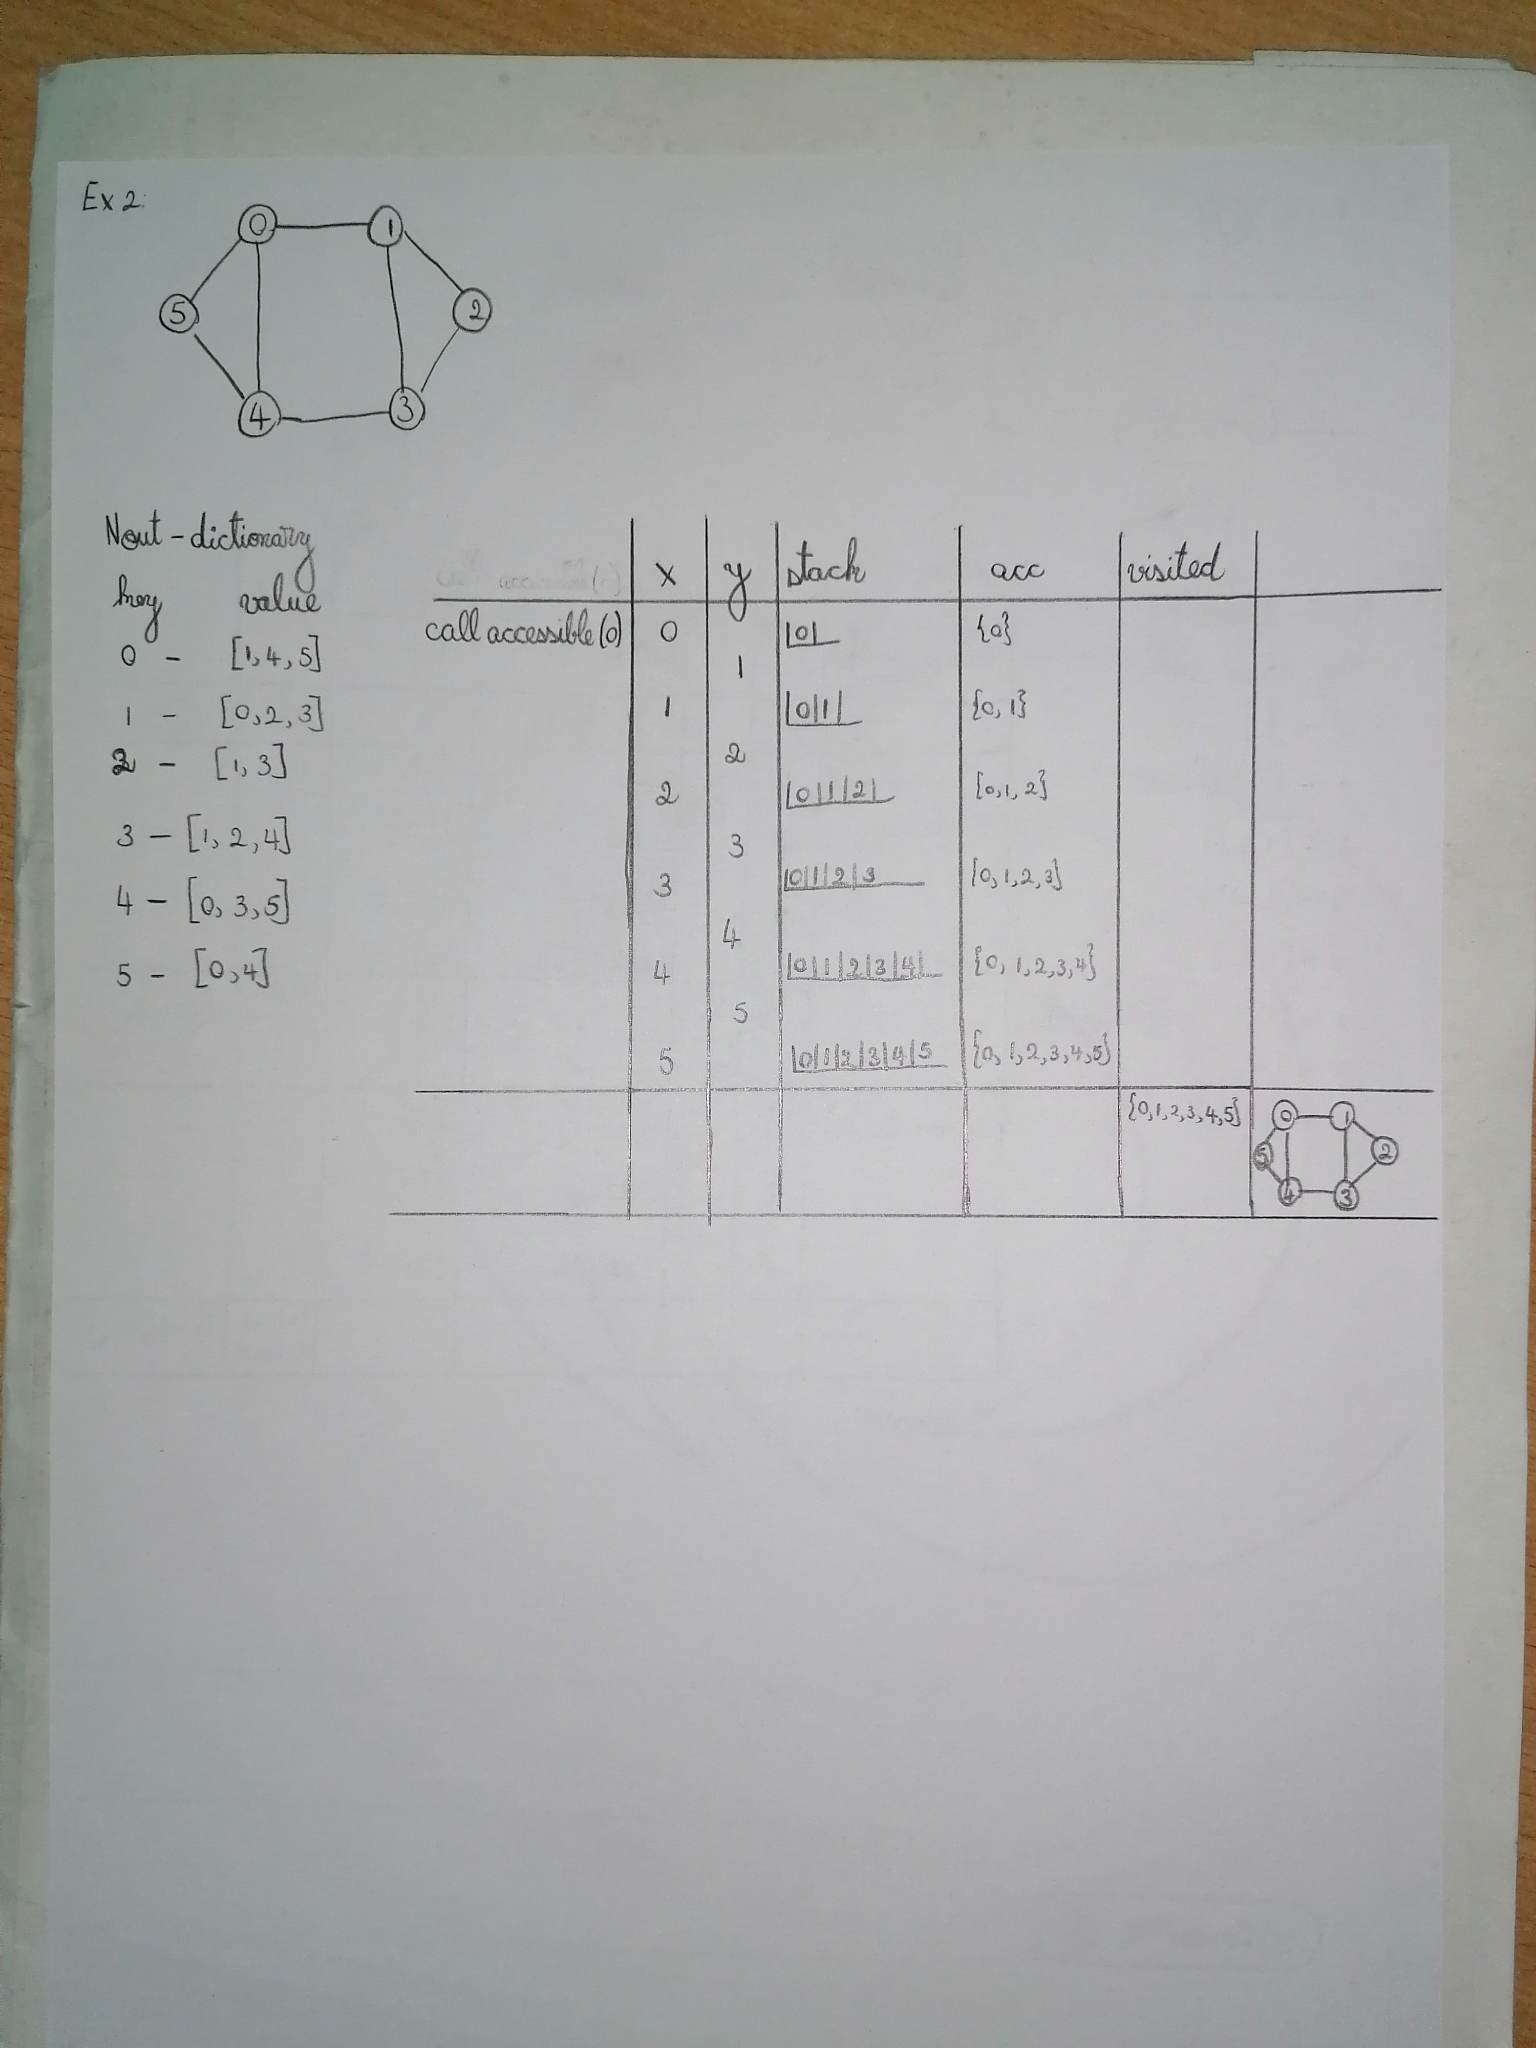 Ex 2:
0 1
5 2
4 3
Nout - dictionary
key value
0 - [1, 4, 5]
1 - [0, 2, 3]
2 - [1, 3]
3 - [1, 2, 4]
4 - [0, 3, 5]
5 - [0, 4]
x y stack acc visited
call accessible (0) 0 |0| {0}
1
1 |0|1| {0, 1}
2
2 |0|1|2| {0, 1, 2}
3
3 |0|1|2|3 {0, 1, 2, 3}
4
4 |0|1|2|3|4| {0, 1, 2, 3, 4}
5
5 |0|1|2|3|4|5 {0, 1, 2, 3, 4, 5}
{0, 1, 2, 3, 4, 5}
0 1
5 2
4 3